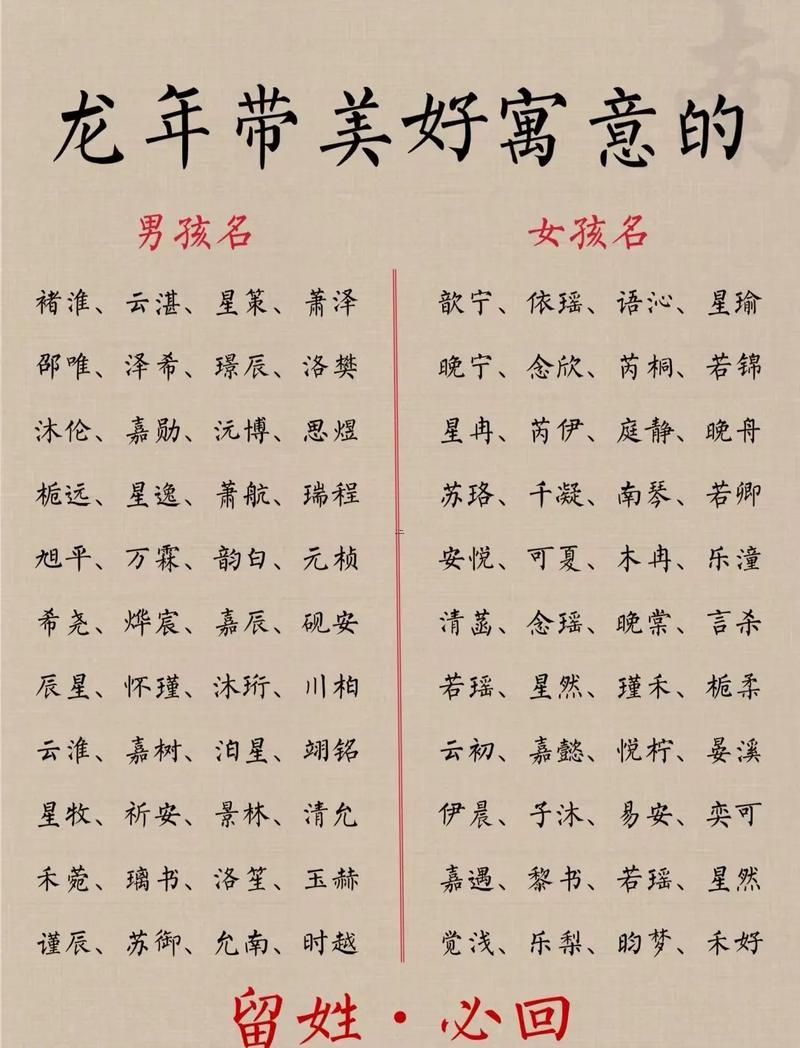 龙年带美好寓意的
男孩名
褚淮、云湛、星策、萧泽
邵唯、泽希、璟辰、洛樊
沐伦、嘉勋、沅博、思煜
栀远、星逸、萧航、瑞程
旭平、万霖、韵白、元桢
希尧、烨宸、嘉辰、砚安
辰星、怀瑾、沐珩、川柏
云淮、嘉树、泊星、翊铭
星牧、祈安、景林、清允
禾菀、璃书、洛笙、玉赫
谨辰、苏御、允南、时越
女孩名
歆宁、依瑶、语沁、星瑜
晚宁、念欣、芮桐、若锦
星冉、芮伊、庭静、晚舟
苏珞、千凝、南琴、若卿
安悦、可夏、木冉、乐潼
清菡、念瑶、晚棠、言杀
若瑶、星然、瑾禾、栀柔
云初、嘉懿、悦柠、晏溪
伊晨、子沐、易安、奕可
嘉遇、黎书、若瑶、星然
觉浅、乐梨、昀梦、禾好
留姓·必回
南